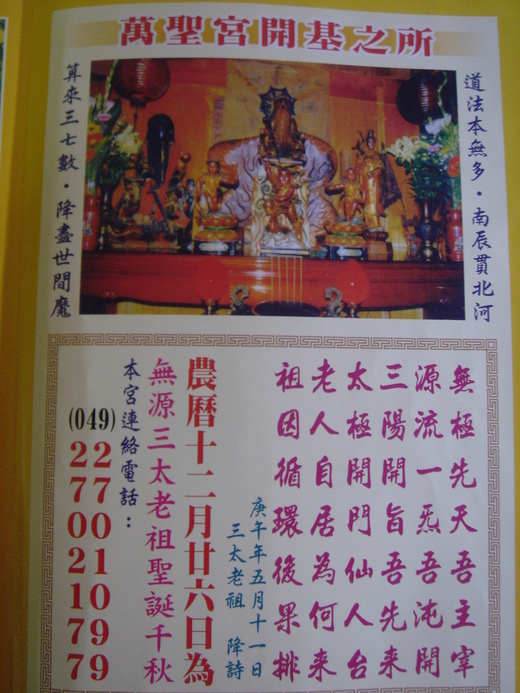 萬聖宮開基之所
道法本無多·南辰貫北河
算來三七數·降盡世間魔
無極先天吾主宰
源流一炁吾沌開
三陽開旨吾先來
太極開門仙人台
老人自居為何來
祖因循環後果排
庚午年五月十一日
三太老祖 降詩
農曆十二月廿六日為
無源三太老祖聖誕千秋
本宮連絡電話：
(049)
2701079
2700219